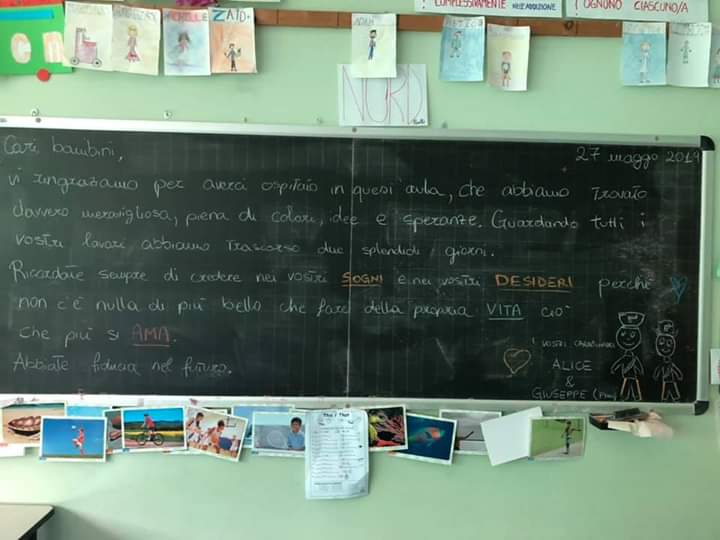 ZAID
COMPLESSIVAMENTE NELL'ADDIZIONE
OGNUNO CIASCUNO/A
NORD
27 maggo 2019
Cari bambini,
vi ringraziamo per averci ospitato in quest'aula, che abbiamo trovato
davvero meravigliosa, piena di colori, idee e speranze. Guardando tutti i
vostri lavori, abbiamo trascorso due splendidi giorni.
Ricordate sempre di credere nei vostri SOGNI e nei vostri DESIDERI perché
non c'è nulla di più bello che fare della propria VITA ciò
che più si AMA.
Abbiate fiducia nel futuro.
I VOSTRI CARABINIERI
ALICE
&
GIUSEPPE
This / That